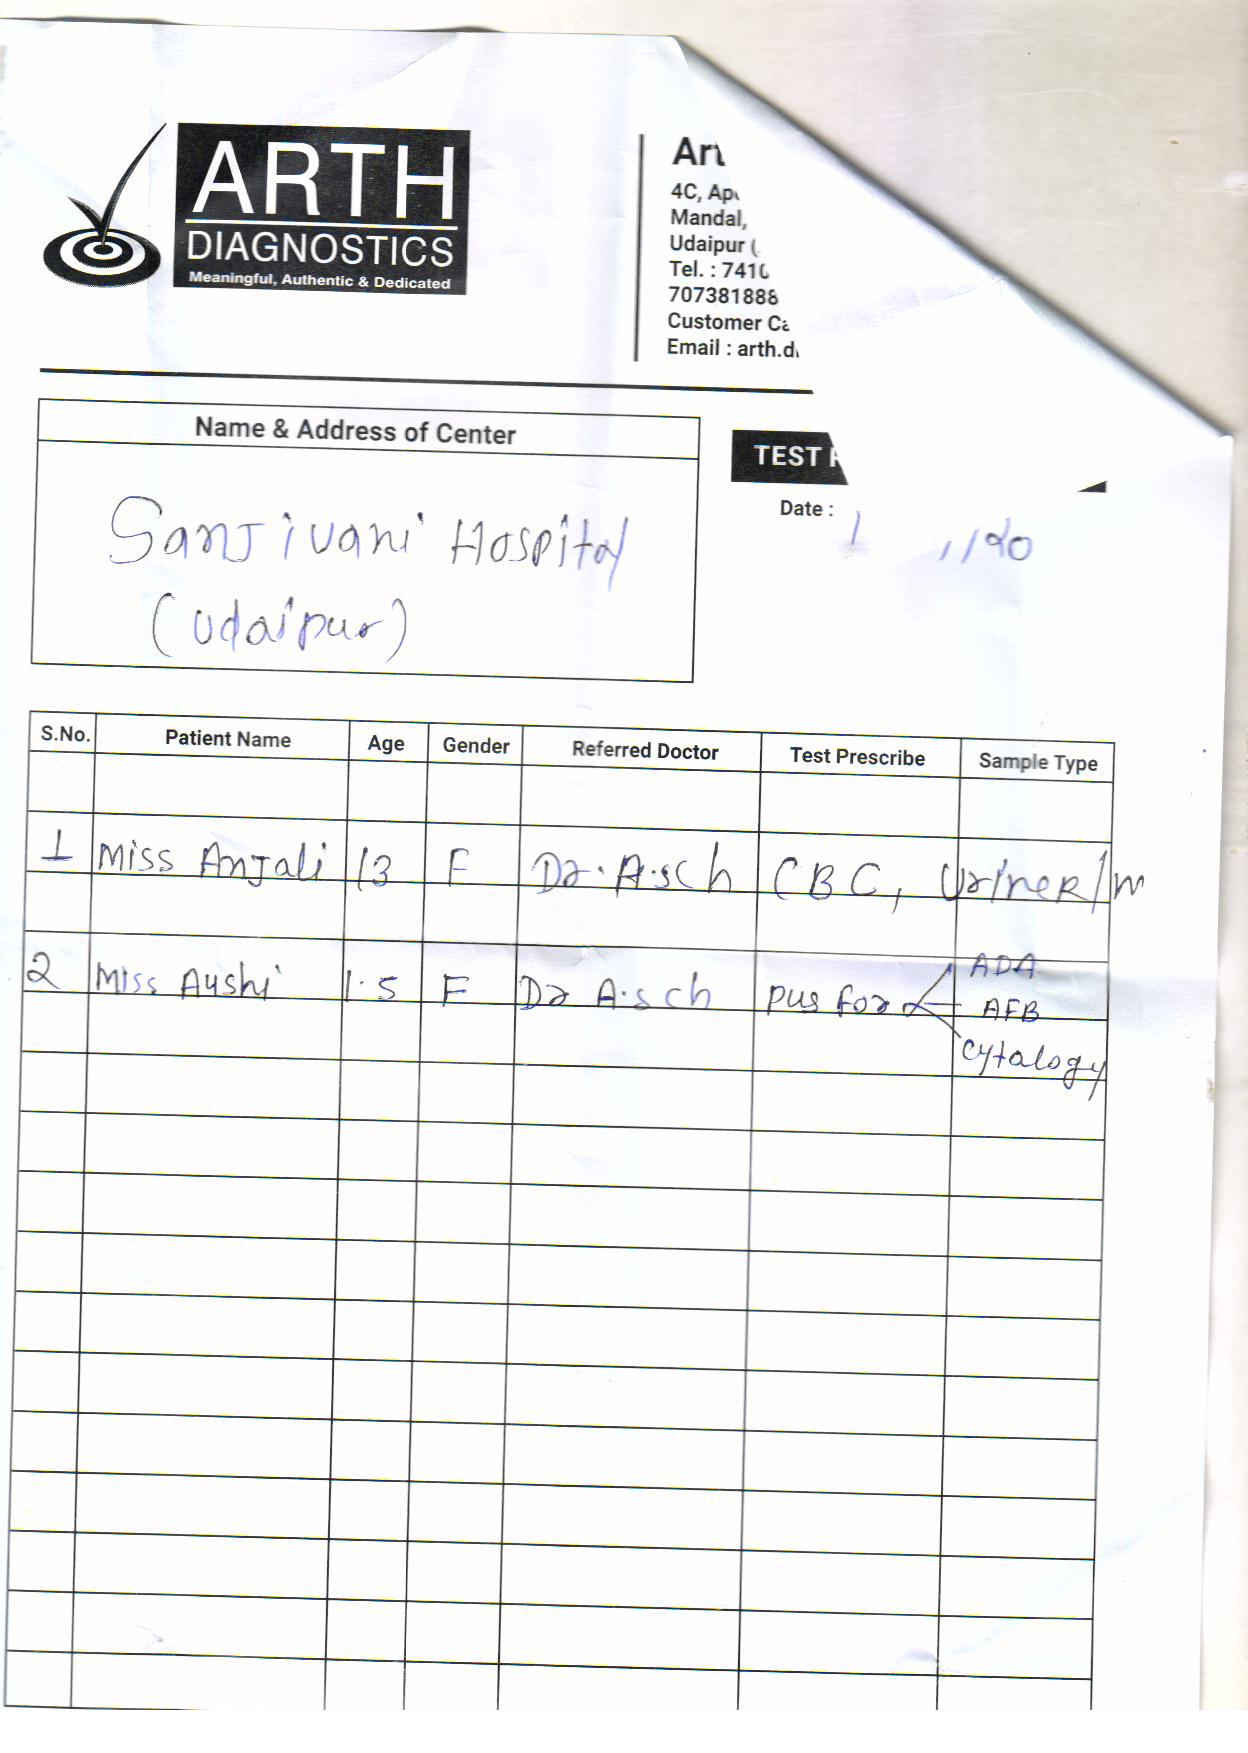 ARTH
DIAGNOSTICS
Meaningful, Authentic & Dedicated
4C,
Mandal,
Udaipur (
Tel. : 741
707381888
Customer
Email : arth.d
Name & Address of Center
Sanjivani Hospital
(Udaipur)
TEST
Date :
S.No. Patient Name Age Gender Referred Doctor Test Prescribe Sample Type
1 Miss Anjali 13 F Dr. A.sch CBC, Urine R/m
2 Miss Ayshi 1.5 F Dr A.sch pus for ADA
AFB
Cytalogy